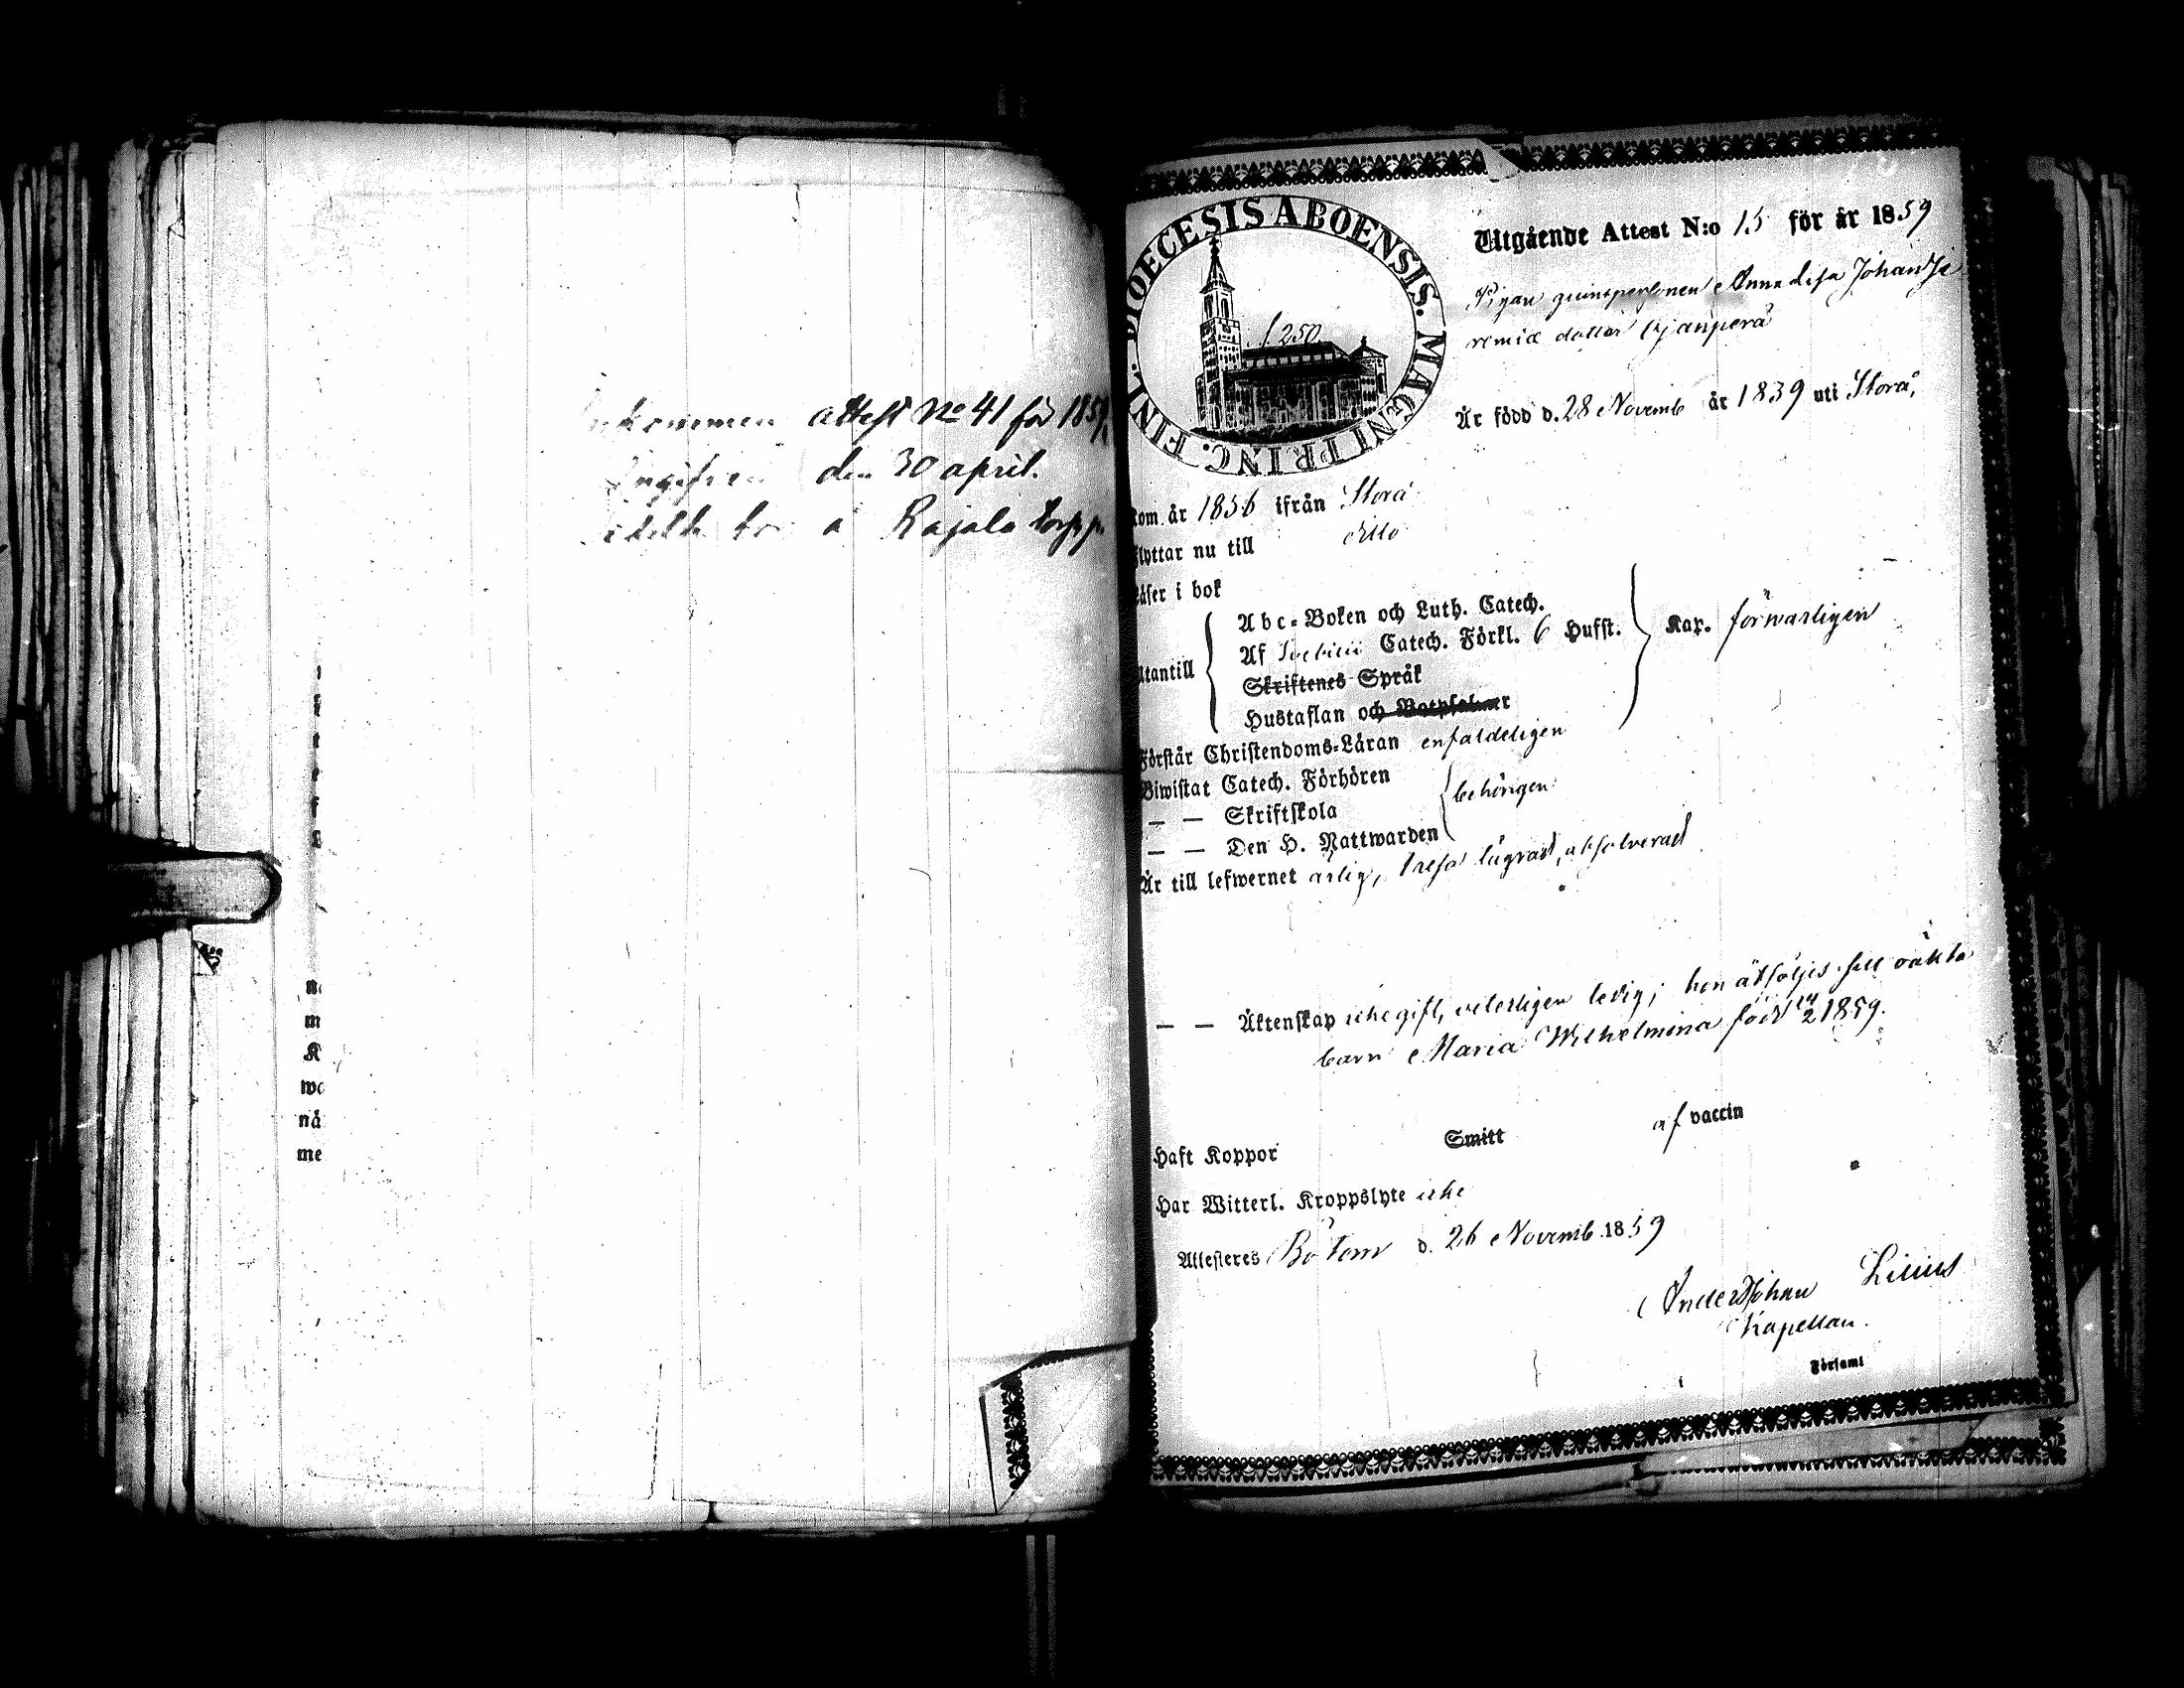 attest No 41 för 1859
den 30 april.
å Rajala torp
ne
m
K
wo
nå
me
DIOECESIS ABOENSIS. MAGNI PRINC. FINL.
f. 250.
Utgående Attest N:o 15 för år 1859
Pigan qvinspersonen Anna Lisa Johan Je
remiæ dotter
Är född d. 28 Novemb år 1839 uti Storå,
kom år 1856 ifrån Storå
flyttar nu till ditto
Läser i bok
Abc-Boken och Luth. Catech.
Af Svebilii Catech. Förkl. 6 Hufst. Kap. förwarligen
Utantill
Skriftenes Språk
Hustaflan och Botpsalmer
Förstår Christendoms-Läran enfaldeligen
Biwistat Catech. Förhören
— — Skriftskola behörigen
— — Den H. Nattwarden
Är till lefwernet ärlig, lägrad, absolverad
— — Äktenskap icke gift, veterligen ledig; hon åtföljes sitt oäkta
barn Maria Wilhelmina född 14/2 1859.
Haft Koppor Smitt af vaccin
Har Witterl. Kroppslyte icke
Attesteres Bötom d. 26 Novemb. 1859
Anders Johan Lilius
Kapellan.
Församl